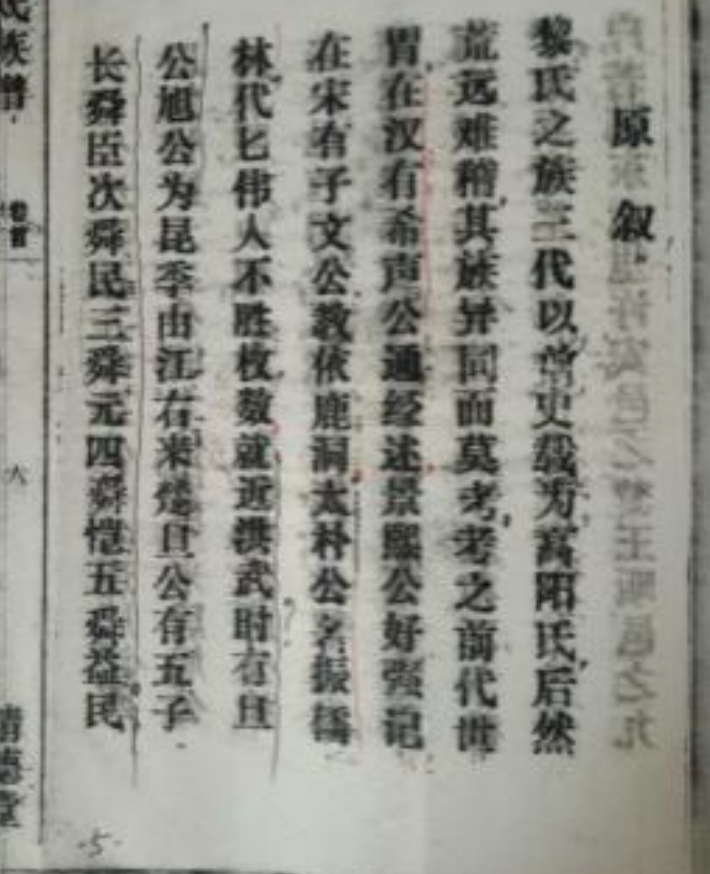 原叙
黎氏之族三代以前史载为高阳氏后然
荒远难稽其族异同而莫考考之前代世
胄在汉有希声公通经述景熙公好强记
在宋有子文公教依鹿洞太朴公名振
林代匕伟人不胜枚数就近洪武时有旦
公旭公为昆季由江右来旦公有五子
长舜臣次舜民三舜元四舜恺五舜益民
氏族谱
卷首
六
德堂
5